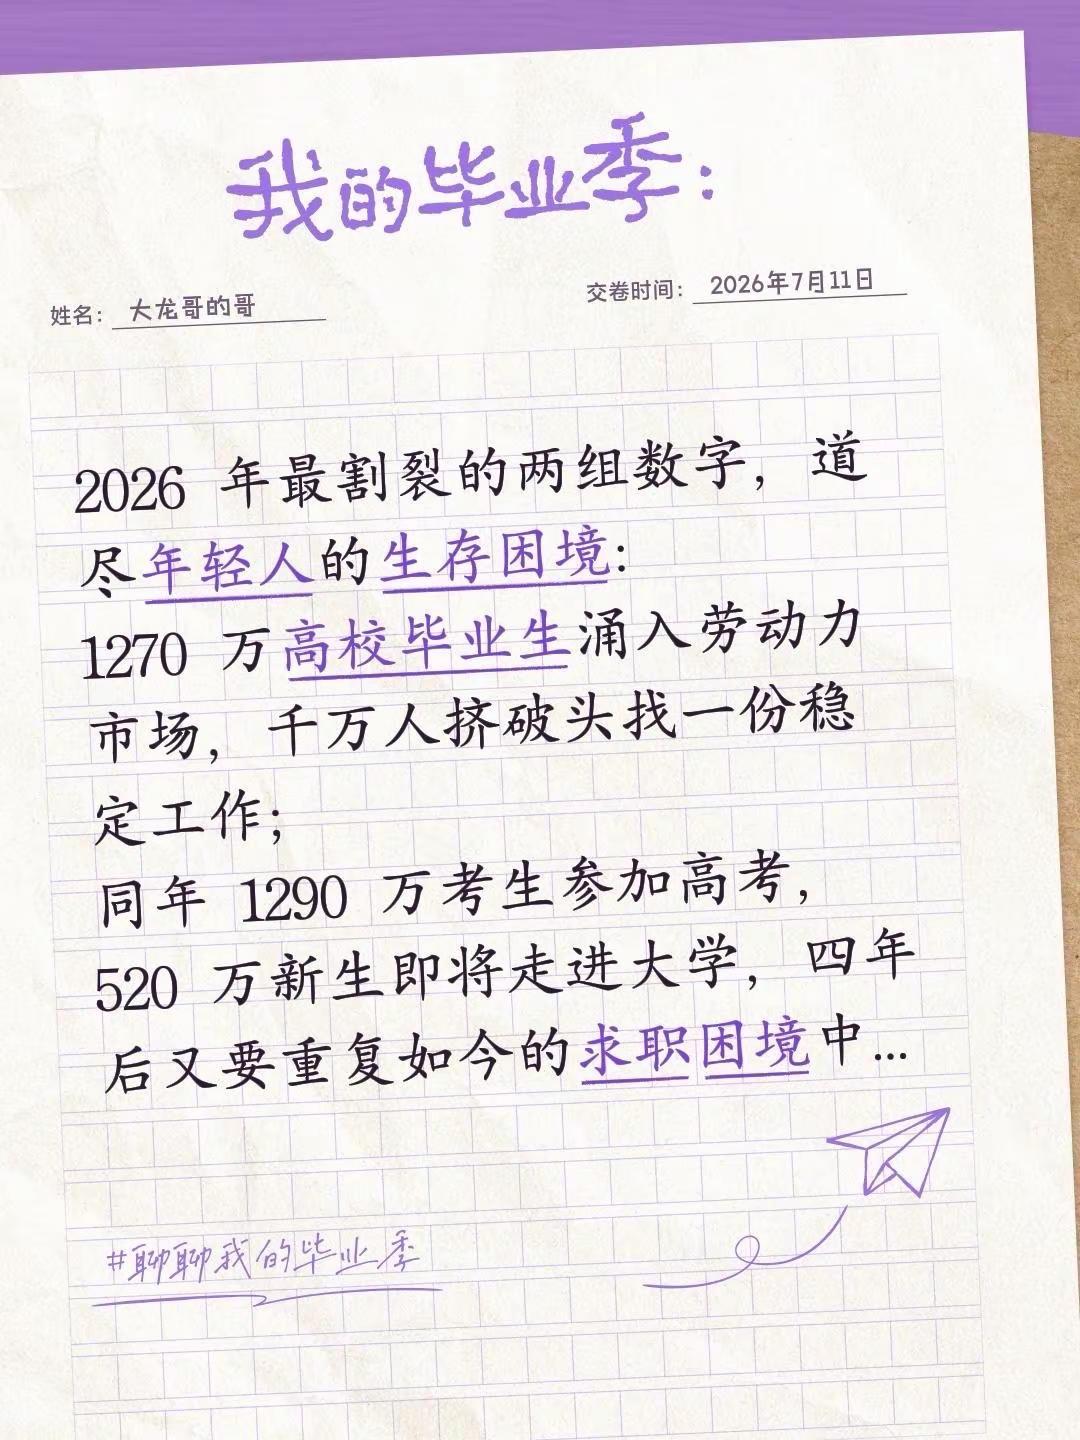 我的毕业季：
姓名： 大龙哥的哥
交卷时间： 2026年7月11日
2026 年最割裂的两组数字，道
尽年轻人的生存困境：
1270 万高校毕业生涌入劳动力
市场，千万人挤破头找一份稳
定工作；
同年 1290 万考生参加高考，
520 万新生即将走进大学，四年
后又要重复如今的求职困境中...
#聊聊我的毕业季